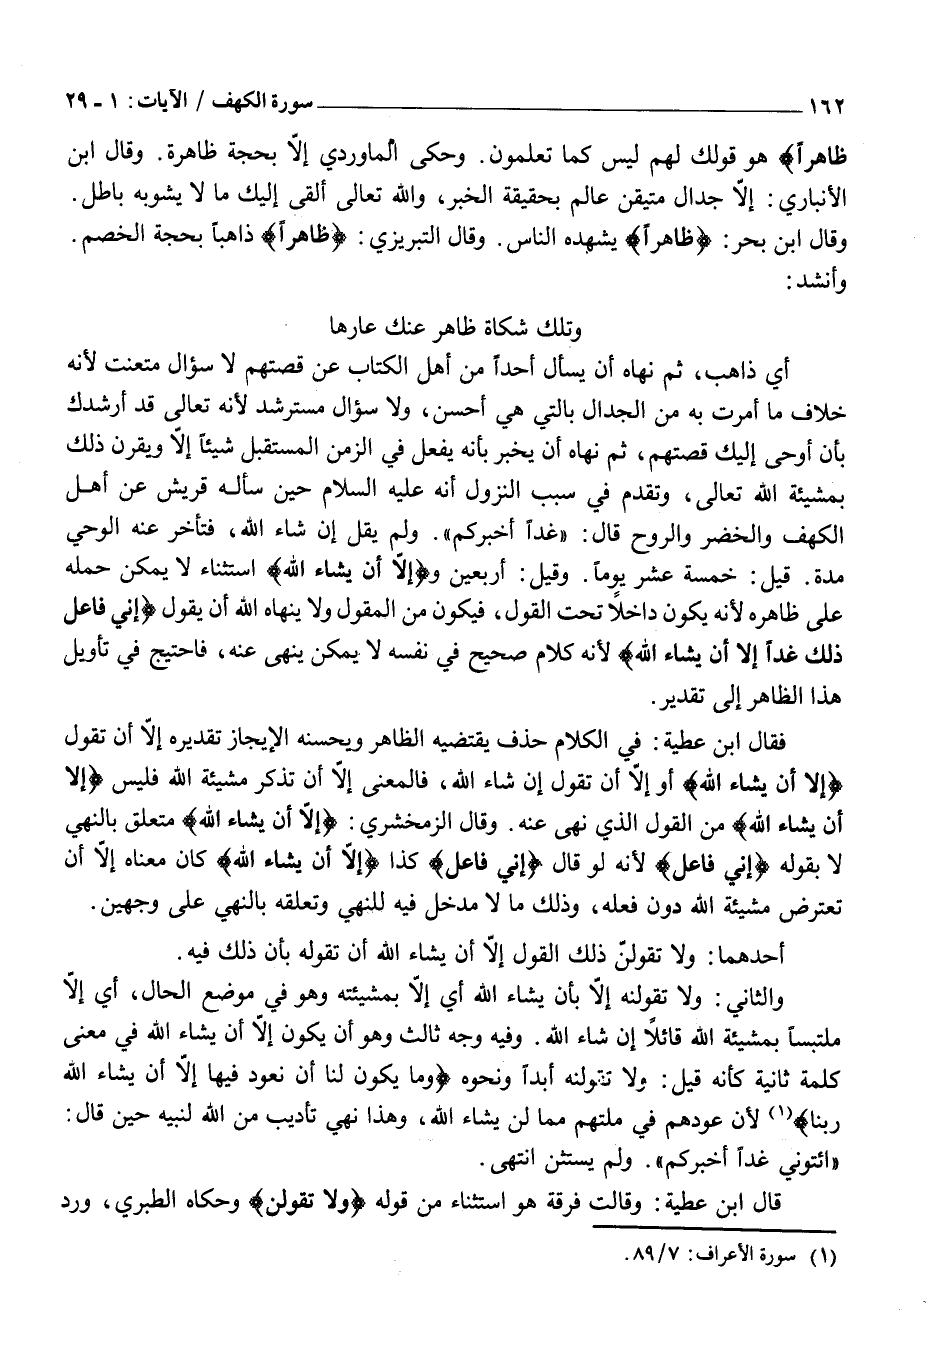 ١٦٢ ــــــــــــــــــــــــ سورة الكهف / الآيات: ١ - ٢٩
ظاهراً﴾ هو قولك لهم ليس كما تعلمون. وحكى الماوردي إلّا بحجة ظاهرة. وقال ابن
الأنباري: إلّا جدال متيقن عالم بحقيقة الخبر، والله تعالى ألقى إليك ما لا يشوبه باطل.
وقال ابن بحر: ﴿ظاهراً﴾ يشهده الناس. وقال التبريزي: ﴿ظاهراً﴾ ذاهباً بحجة الخصم.
وأنشد:
وتلك شكاة ظاهر عنك عارها
أي ذاهب، ثم نهاه أن يسأل أحداً من أهل الكتاب عن قصتهم لا سؤال متعنت لأنه
خلاف ما أمرت به من الجدال بالتي هي أحسن، ولا سؤال مسترشد لأنه تعالى قد أرشدك
بأن أوحى إليك قصتهم، ثم نهاه أن يخبر بأنه يفعل في الزمن المستقبل شيئاً إلّا ويقرن ذلك
بمشيئة الله تعالى، وتقدم في سبب النزول أنه عليه السلام حين سأله قريش عن أهل
الكهف والخضر والروح قال: «غداً أخبركم». ولم يقل إن شاء الله، فتأخر عنه الوحي
مدة. قيل: خمسة عشر يوماً. وقيل: أربعين و﴿إلّا أن يشاء الله﴾ استثناء لا يمكن حمله
على ظاهره لأنه يكون داخلاً تحت القول، فيكون من المقول ولا ينهاه الله أن يقول ﴿إني فاعل
ذلك غداً إلا أن يشاء الله﴾ لأنه كلام صحيح في نفسه لا يمكن ينهى عنه، فاحتيج في تأويل
هذا الظاهر إلى تقدير.
فقال ابن عطية: في الكلام حذف يقتضيه الظاهر ويحسنه الإيجاز تقديره إلّا أن تقول
﴿إلا أن يشاء الله﴾ أو إلّا أن تقول إن شاء الله، فالمعنى إلّا أن تذكر مشيئة الله فليس ﴿إلا
أن يشاء الله﴾ من القول الذي نهى عنه. وقال الزمخشري: ﴿إلّا أن يشاء الله﴾ متعلق بالنهي
لا بقوله ﴿إني فاعل﴾ لأنه لو قال ﴿إني فاعل﴾ كذا ﴿إلّا أن يشاء الله﴾ كان معناه إلّا أن
تعترض مشيئة الله دون فعله، وذلك ما لا مدخل فيه للنهي وتعلقه بالنهي على وجهين.
أحدهما: ولا تقولنّ ذلك القول إلّا أن يشاء الله أن تقوله بأن ذلك فيه.
والثاني: ولا تقولنه إلّا بأن يشاء الله أي إلّا بمشيئته وهو في موضع الحال، أي إلّا
ملتبساً بمشيئة الله قائلاً إن شاء الله. وفيه وجه ثالث وهو أن يكون إلّا أن يشاء الله في معنى
كلمة ثانية كأنه قيل: ولا تقولنه أبداً ونحوه ﴿وما يكون لنا أن نعود فيها إلّا أن يشاء الله
ربنا﴾(١) لأن عودهم في ملتهم مما لن يشاء الله، وهذا نهي تأديب من الله لنبيه حين قال:
«ائتوني غداً أخبركم». ولم يستثن انتهى.
قال ابن عطية: وقالت فرقة هو استثناء من قوله ﴿ولا تقولن﴾ وحكاه الطبري، ورد
(١) سورة الأعراف: ٨٩/٧.